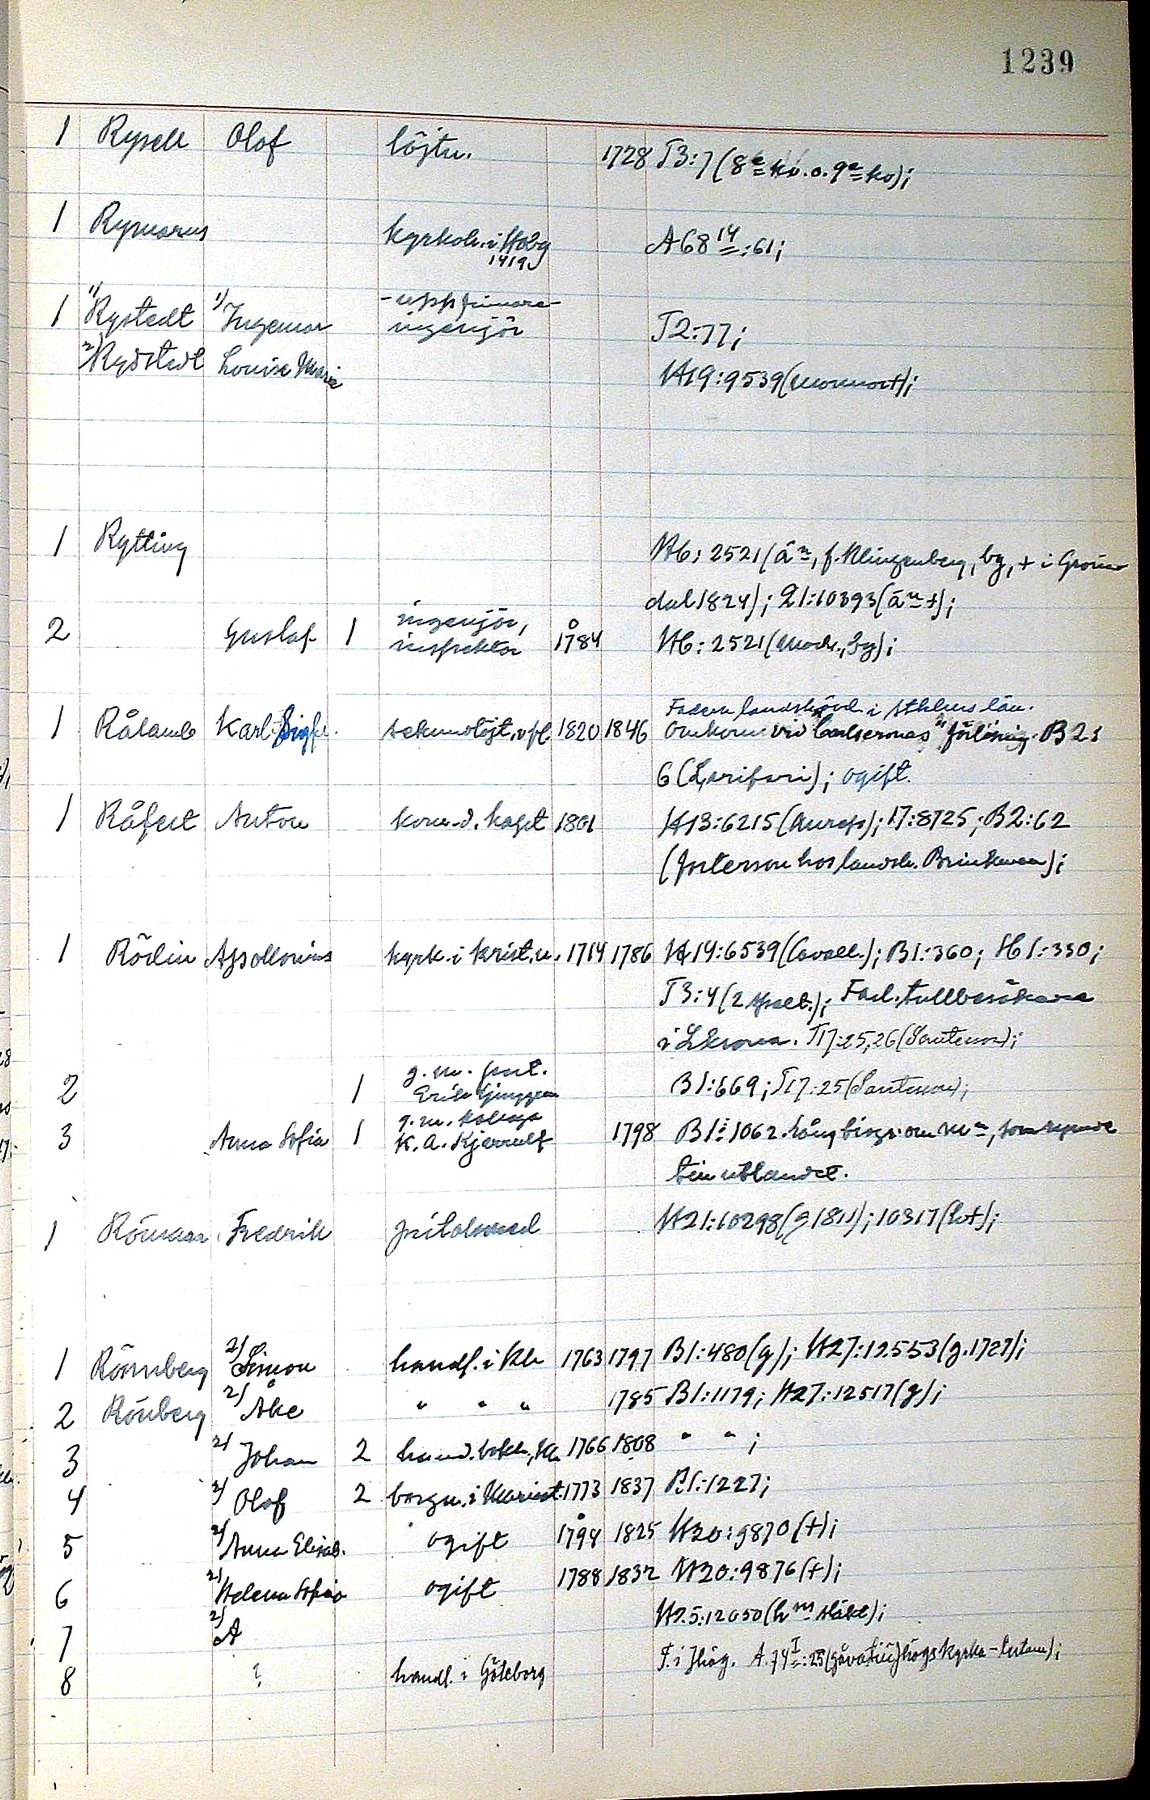 1239
1 Rysell Olof löjtn. 1728 T3:7 (8e ko. o. 9e ko);
1 Rymarus kyrkoh. i Hbg A68 14:61;
1419
1 1) Rystedt 1) Ingemar -uppfinnare-
ingenjör T2:77;
2) Rydstedt Louise Marie H19:9539 (mormor†);
1 Rytting H6:2521 (än, f. Klingenberg, bg, † i
dal 1824); 21:10393 (än †);
2 Gustaf 1 ingenjör,
inspektor 1784 H6:2521 (mode, bg);
1 Rålamb Karl Sigfr. sekundlöjt. v fl 1820 1846 Fadern landshövd. i Sthlms län.
Omkom vid Carlscronas förlisning. B2:
6 (Larifari); ogift.
1 Råfelt Anton kom. d. kapt 1801 H13:6215 17:8725; B2:62
hos landsh. Brinkman);
1 Rödin Apollonius kyrk. i Krist.n. 1714 1786 H14:6539 (Cavall.); B1:360; H1:330;
T3:4 Fad. tullbesökare
i Lkrona. T17:25,26 (Santesson);
2 1 g. m. prst.
Erik Ljunggren B1:669; T17:25 (Santesson);
3 Anna Sofia 1 g. m. kollega
K. A. Kjerrulf 1798 B1:1062. lång biogr. om mn, som rymde
till utlandet.
1 Römaar Fredrik H21:10298 (g 1811); 10317
1 Rönnberg 2) Simon handl. i Kh 1763 1797 B1:480 (g); H27:12553 (g. 1727);
2 Rönberg 2) Åke " " " 1785 B1:1179; H27:12517 (g);
3 2) Johan 2 hand. bokh., Kh 1766 1808 " " ;
4 2) Olof 2 borgm. i Krist. 1773 1837 B1:1227;
5 2) Anna Elisab. ogift 1794 1825 H20:9870 (†);
6 2) Helena Sofia ogift 1788 1832 H20:9876 (†);
7 2) A H25:12050 (hm släkt);
8 ? handl. i Göteborg F. i Jhög. A.74 I:25 (gåva till Jhögs kyrka